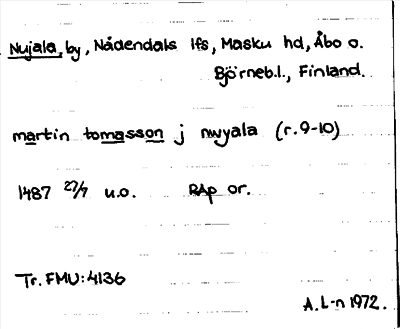 Nujala, by, Nådendals lfs, Masku hd, Åbo o.
Björneb.l., Finland.
martin tomasson j nwyala (r.9-10)
1487 27/7 u.o. RAp or.
Tr. FMU:4136
A.L-n 1972.